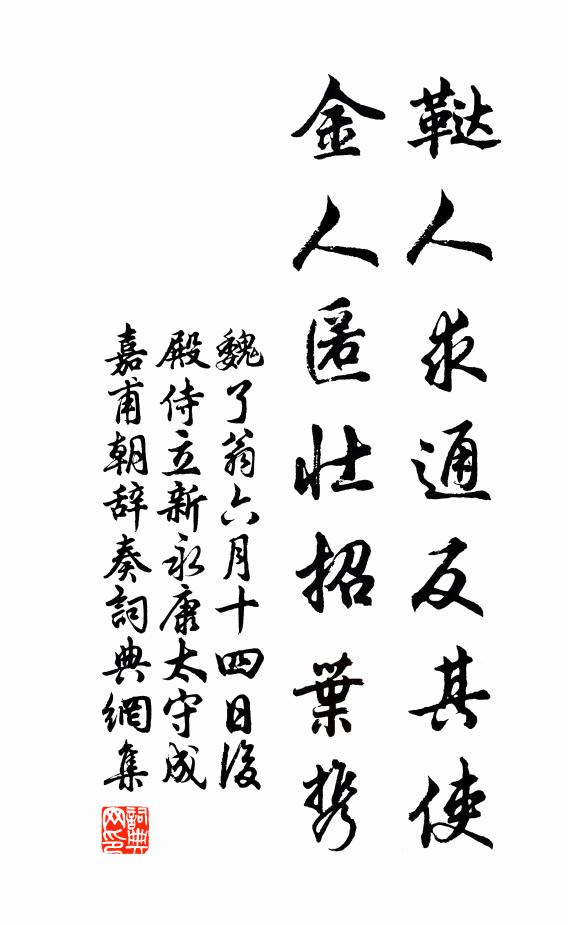 鞑人求通反其使
金人匿壮招葉携
魏了翁六月十四日後
殿侍立新永康太守成
嘉甫朝辞奏詞典網集
詞典
网印